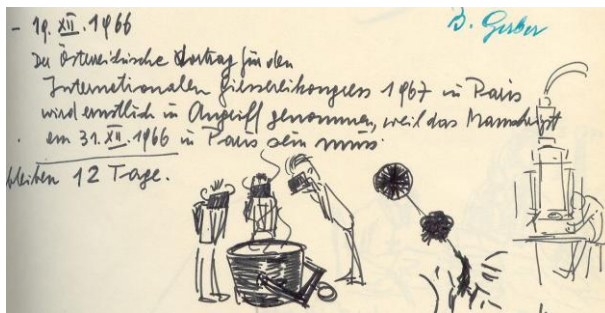 - 19. XII. 1966
B. Gerber
Der Österreichische Vortrag für den
Internationalen Giessereikongress 1967 in Paris
wird ernstlich in Angriff genommen, weil das Manuskript
am 31. XII. 1966 in Paris sein muss.
bleiben 12 Tage.